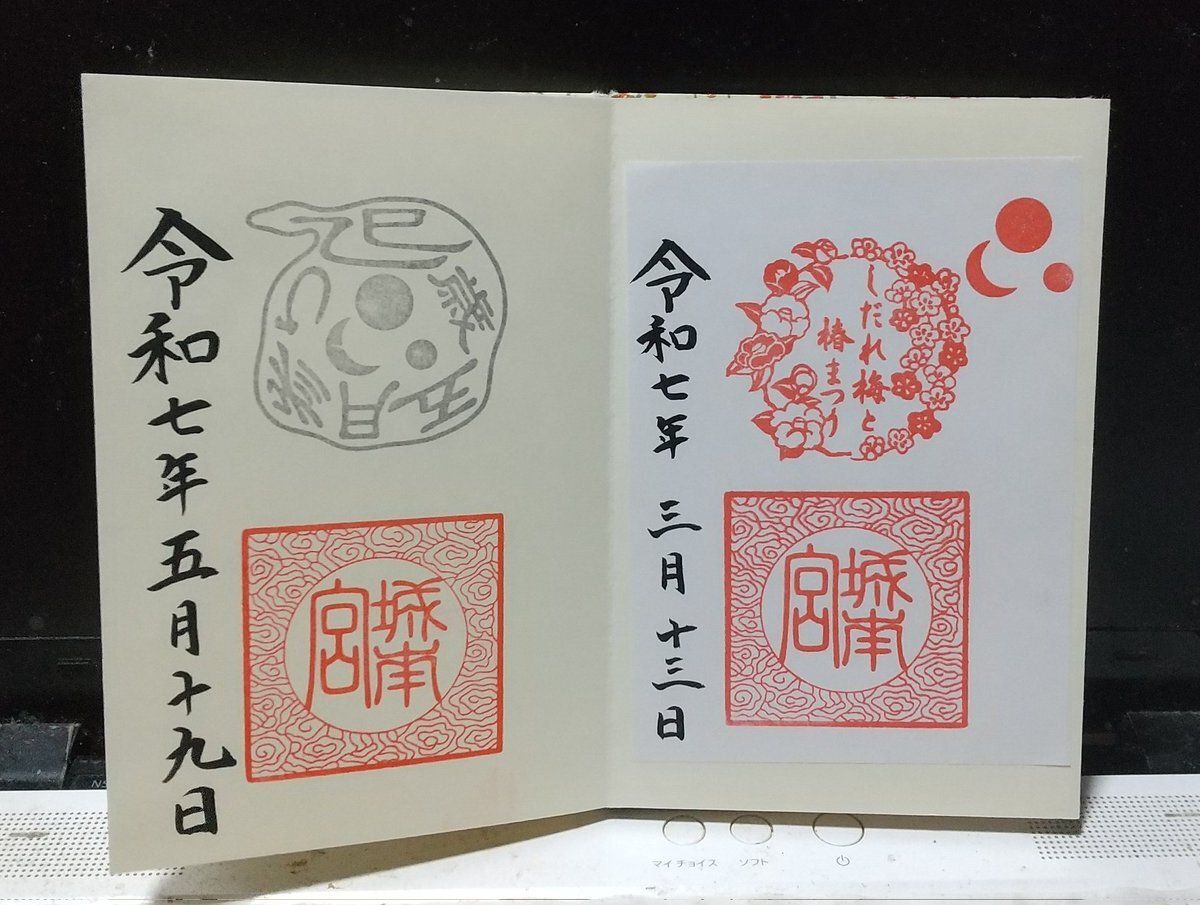 しだれ梅と
椿まつり
城南
宮
令和七年 三月十三日
乙巳歳五月参り
城南
宮
令和七年五月十九日
マイチョイス
ソフト